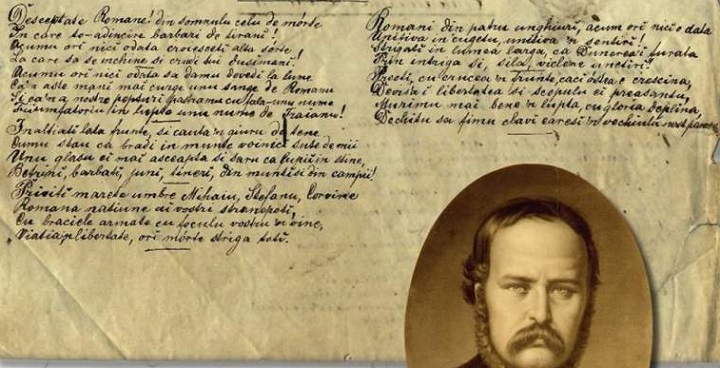 Desceptate Romane! din somnulu celu de mórte
In care te-adincire barbari de tirani!
Acumu ori nici odata croiesceti alta sórte!
La care sa se inchine si crudii tei dusimani!
Acumu ori nici odata sa damu dovedi la lume
Ca'n aste mani mai curge unu sange de Romanu
Si ca'n a nostre pepturi pastramu cu fala unu nume
Triumfatoriu in lupte unu nume de Traianu!
Inaltiati lata frunte, si cauta'n giuru de tene
Cumu stau ca bradi in munte voinici sute de mii
Unu glasu ei mai ascepta si saru ca lupii in stine,
Betrini, barbati, juni, tineri, din munti si din campii!
Priviti marete umbre Mihaiu, Stefanu, Corvine
Romana natiune ai vostri stranepoti,
Cu braciele armate cu foculu vostru'n vine,
Viatia'n libertate, ori mórte striga toti.
Romani din patru unghiuri, acum ori nici o data
Uniti-va in cugetu, uniti-va'n sentiri!
Strigati in lumea larga, ca Dunerea-i furata
Prin intriga si, sila, viclene uneltiri!
Preoti, cu crucea'n frunte, caci óstea e crescina,
Devisa-i libertatea si scopulu ei preasantu,
Murimu mai bene'n lupta, cu gloria deplina,
Decâtu sa fimu sclavi earesi'n vechiulu nost